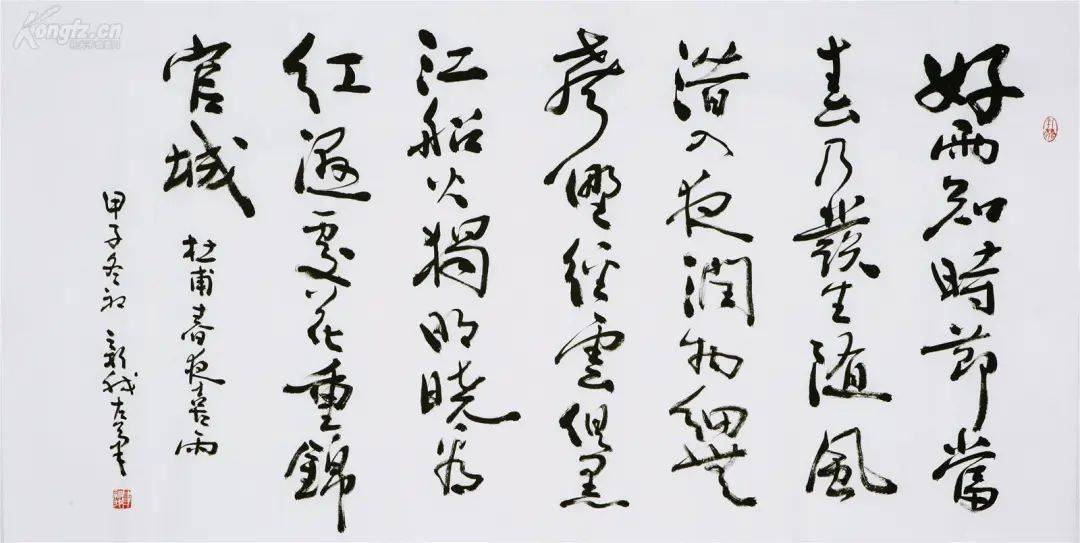 好雨知時節當
春乃發生随風
潜入夜潤物細無
聲野徑雲俱黑
江船火獨明曉看
紅濕處花重錦
官城
杜甫春夜喜雨
甲子冬初 新我左筆
Kongfz.cn